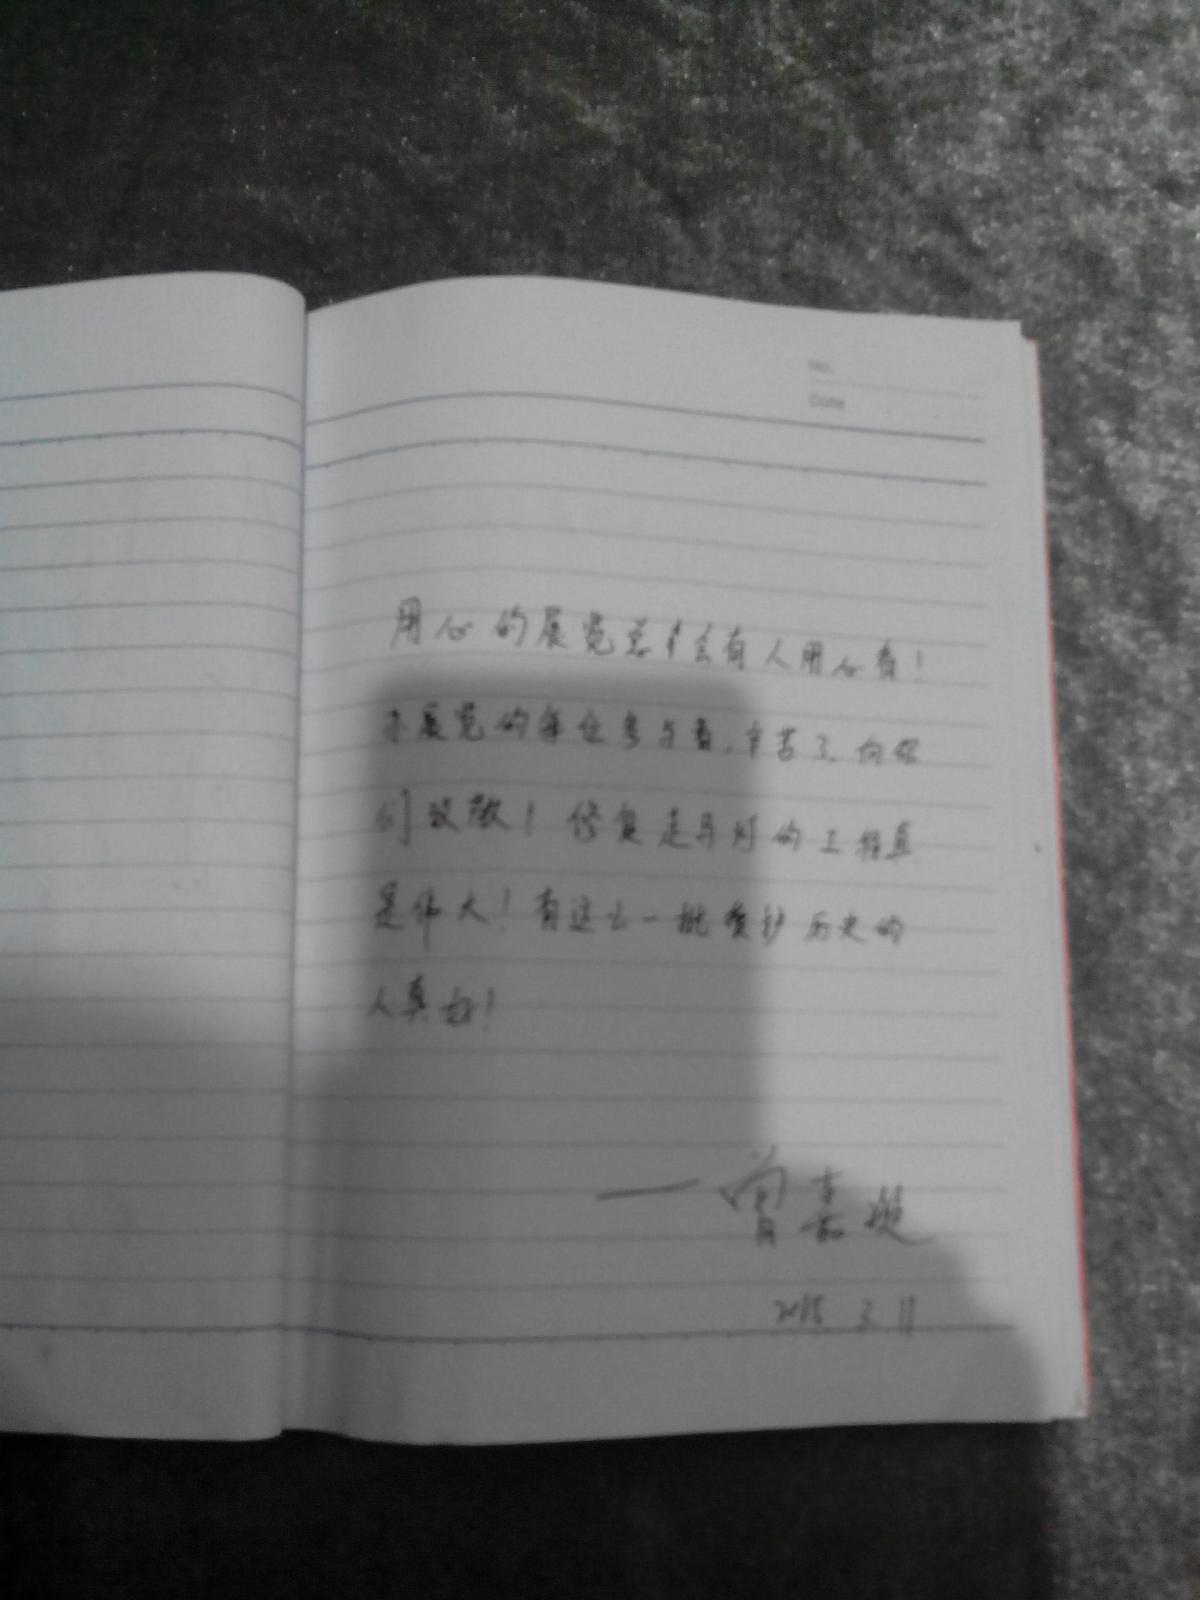 No.
Date
用心的展览总会有人用心看!
办展览的每位参与者,辛苦了,向你
们致敬!修复走马灯的工程真
是伟大!有这么一批爱护历史的
人真好!
—曾嘉
3 11